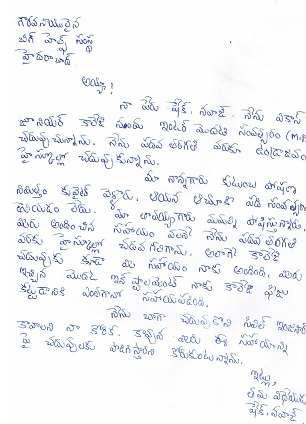 గౌరవనీయులైన
బిగ్ హెల్ప్ సంస్థ
హైదరాబాద్.
అయ్యా!
నా పేరు షేక్. నవాజ్. నేను వికాస్
జూనియర్ కాలేజీ నందు ఇంటర్ మొదటి సంవత్సరం (M.P.
చదువుచున్నాను. నేను పదవ తరగతి వరకూ
హైస్కూల్లో చదువుకున్నాను.
మా నాన్నగారు కుటుంబ పోషణా
నిమిత్తం కువైట్ వెళ్ళారు. ఆయన ఆచూకీ పది సంవత్సర
తెలియడం లేదు. మా తాతయ్యగారు మమ్మల్ని పోషిస్తున్నారు.
మీరు అందించిన సహాయం వలనే నేను పదవ తరగతి
వరకు హైస్కూల్లో చదవగలిగాను. అలాగే కాలేజీ
చదువుకు కూడా మీ సహాయం నాకు అందింది. మీరు
ఇచ్చిన మొదటి ఇన్ స్టాలుమెంట్ నాకు కాలేజీ ఫీజు
కట్టడానికి ఎంతగానో సహాయపడింది.
నేను బాగా చదువుకొని సివిల్ ఇంజనీర్
కావాలని నా కోరిక. కావున మీరు ఈ సహాయాన్ని
పై చదువులకు పొడిగిస్తారని కోరుకుంటున్నాను.
ఇట్లు,
తమ విధేయుడు
షేక్. నవాజ్.